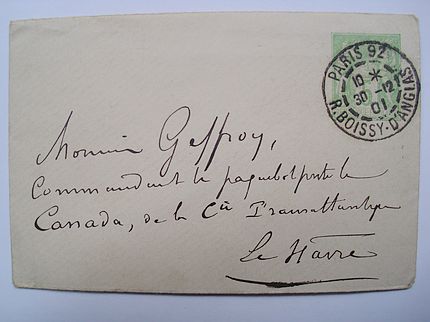 PARIS 92
10 *
30 -12
01
R. BOISSY-D'ANGLAS
Monsieur Geffroy,
Commandant le paquebot poste le
Canada, de la Cie Transatlantique
Le Havre